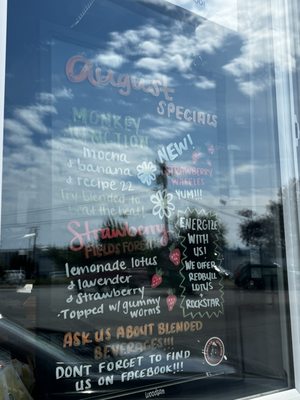 August
SPECIALS
MONKEY
JUNCTION
mocha
+ banana
+ recipe 22
Try blended to
beat the heat!
NEW!
STRAWBERRY
WAFFLES
YUM!!!
Strawberry
FIELDS FOREVER
lemonade lotus
+ lavender
+ strawberry
-Topped w/gummy
worms
ENERGIZE
WITH US!
WE OFFER
REDBULL
LOTUS
+
ROCKSTAR
ASK US ABOUT BLENDED
BEVERAGES!!!
DON'T FORGET TO FIND
US ON FACEBOOK!!!